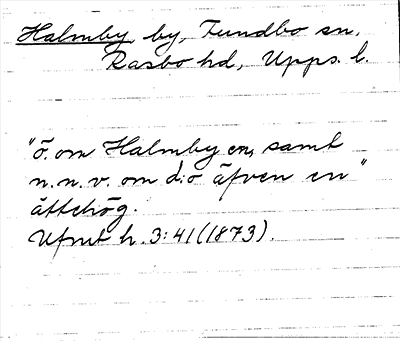 Halmby by, Funbo sn,
Rasbo hd, Upps. l.
"ö. om Halmby en, samt
n.n.v. om d:o äfven en"
ättehög.
Ufmt h. 3:41 (1873).